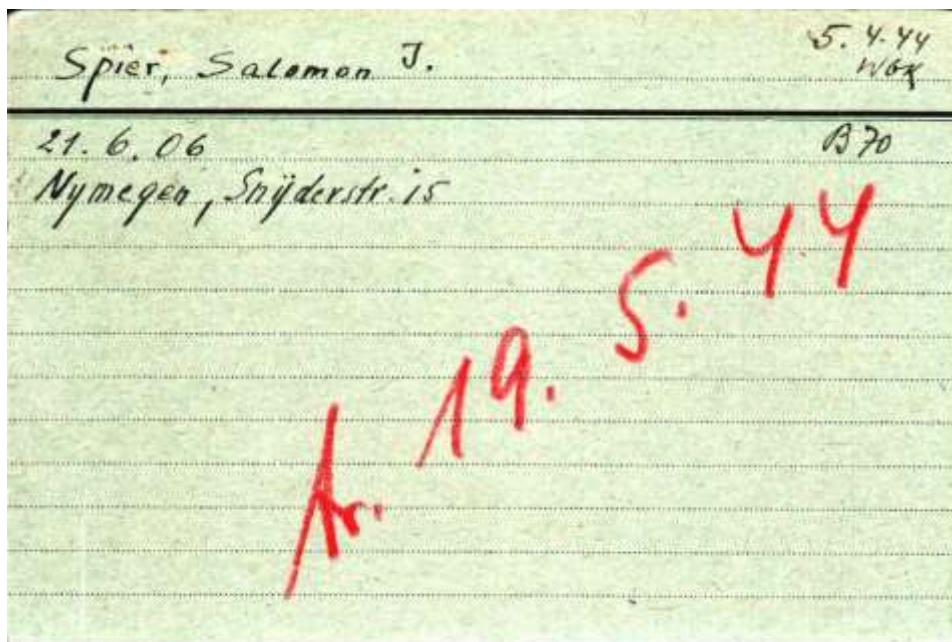 Spier, Salomon J.
5.4.44
Wbk
21.6.06
B70
Nymegen, Snyderstr. 15
tr. 19. 5. 44